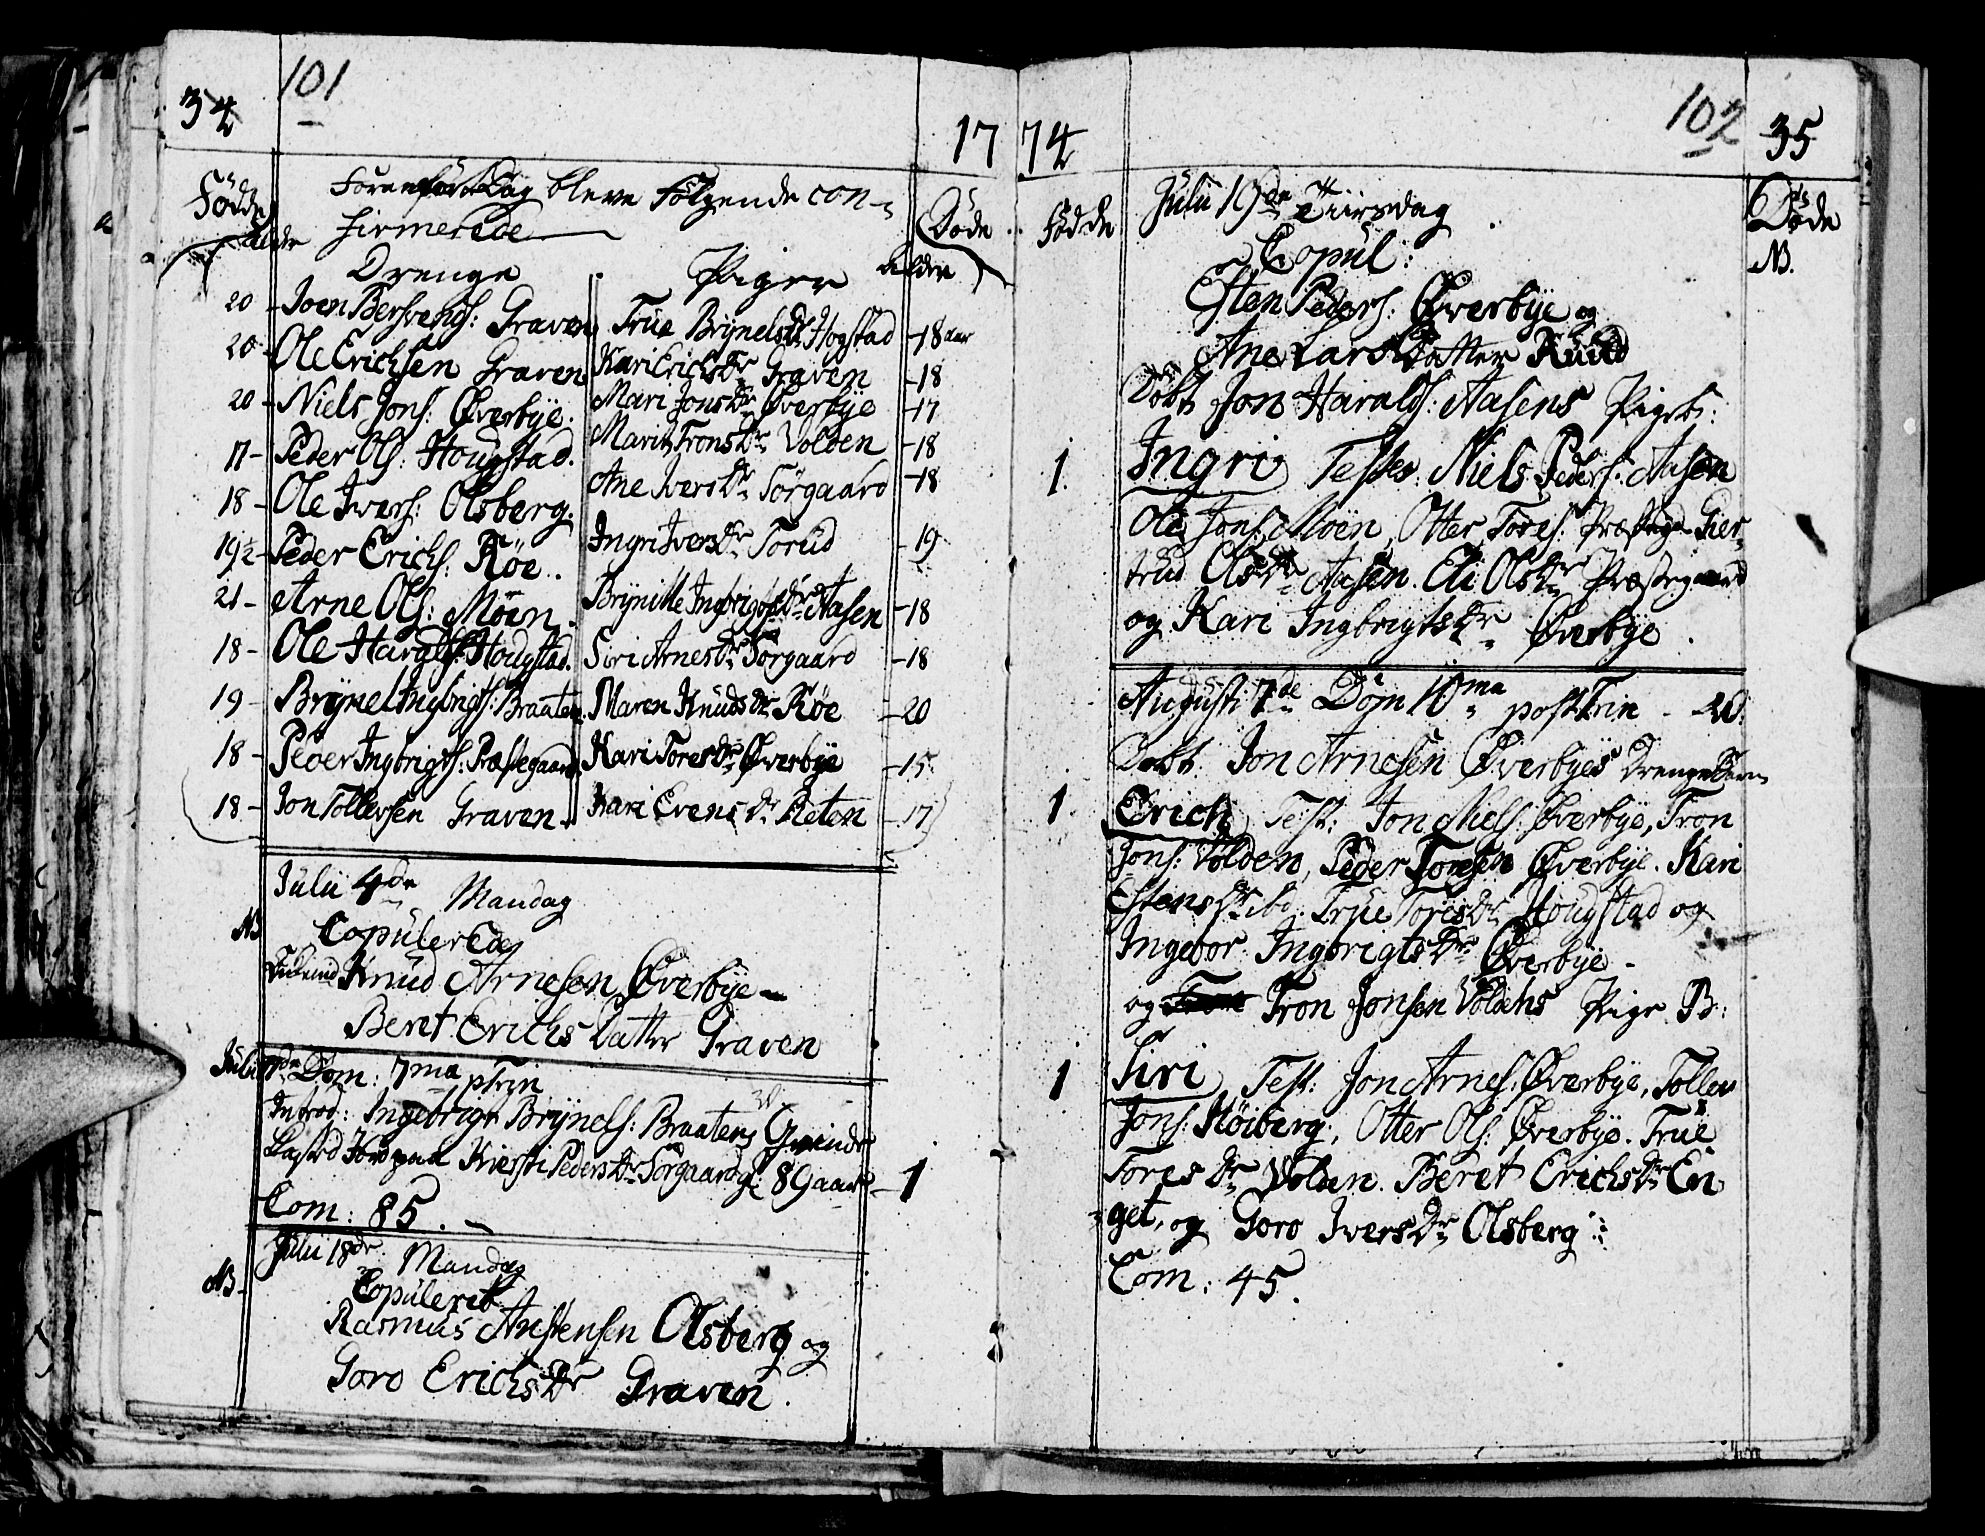 34 101 17
Födde Döde
bleve Følgende con-
firmerede
alder Drenge Piger alder
20 - Joen Bersvends: Graven True BrÿnelsDr Hogstad - 18 aar
20 - Ole Erichsen Graven Kari ErichsDr Graven - 18
20 - Niels Jons: Øverbÿe. Mari JonsDr Øverbÿe - 17
17 - Peder Ols: Hougstad. Marit TronsDr Volden - 18
18 - Ole Ivers: Olsberg. Ane IversDr Sørgaard - 18
19½ - Peder Erichs: Röe.. Ingri IversDr Sorud - 19
21 - Arne Ols: Möen. Brÿnille IngbrigtsDr Aasen - 18
18 - Ole Haralds: Hougstad. Siri ArnesDr Sørgaard - 18
19 - Brÿnel Ingbrigts: Braaten. Maren KnudsDr Röe - 20
18 - Peder Ingbrigts: Præstegaard Kari ToresDr Øverbÿe - 15
18 - Jon Tollevsen Graven. Kari EvensDr Reten - 17
Julii 4de Mandag
NB Copulerede
Knud Arnesen Øverbÿe -
Beret Erichs Datter Graven
Julii Dom: 7ma p Trin
Introd: Ingebrigt Brÿnels: Braatens Qvinde
Kasted Jord paa Kiersti PedersDr Sørgaard gl: 89 aar - 1
Com: 85.
Julii 18de Mandag
NB. Copuleret
Rasmus Austensen Olsberg og
Goro ErichsDr Graven.
74 102 35
Födde Döde
Julii 19de Tiirsdag
NB.
Copul:
Esten Peders: Øverbÿe og
Ane Lars Datter Ruud
Döbt Jon Haralds: Aasens Pigeb:
1. Ingri Testes: Niels Peders: Aasen
Ole Jons: Moen, Otter Tores: Præsteg- Gier-
trud OlsDr Aasen. Eli OlsDr Præstegaard
og Kari IngbrigtsDr Øverbÿe.
Augusti 7de Dom 10ma post Trin -
Döbt Jon Arnesen Øverbÿes Drenge Barn
1 Erich Test: Jon Niels: Øverbÿe, Tron
Jons: Volden, Peder Jonsen Øverbÿe. Kari
EstensDr ibd. True ToresDr Hougstad og
Ingebor IngbrigtsDr Øverbÿe -
og Tron Jonsen Voldens Pige B:
1 Siri Test: Jon Arnes: Øverbÿe, Tollev
Jons: Höiberg, Otter Ols: Øverbÿe. True
ToresDr Volden. Beret ErichsDr En
get, og Goro IversDr Olsberg
Com: 45.